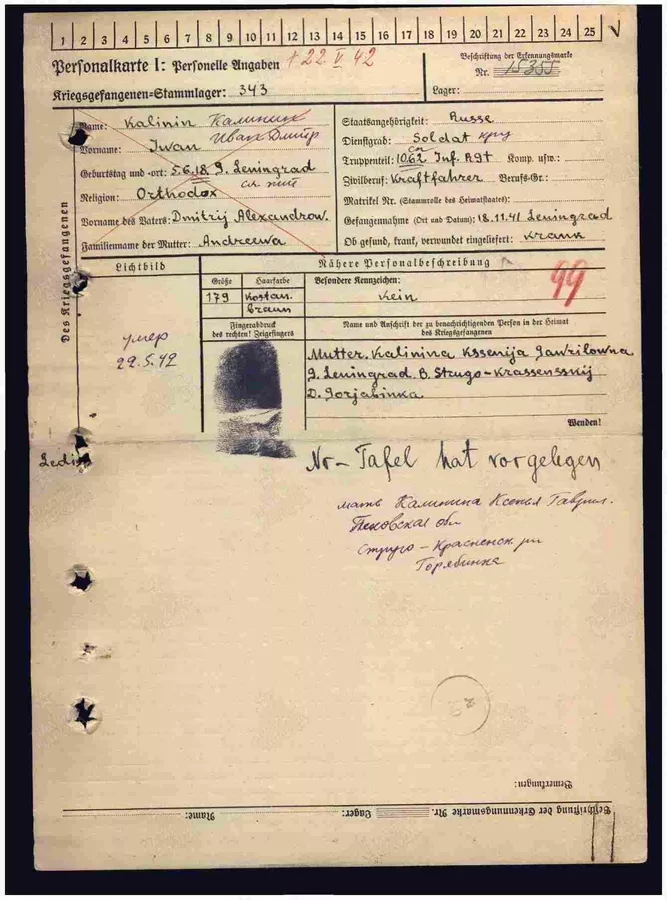 1 2 3 4 5 6 7 8 9 10 11 12 13 14 15 16 17 18 19 20 21 22 23 24 25
Personalkarte I: Personelle Angaben
† 22 V. 42
Beschriftung der Erkennungsmarke
Nr. 15355
Kriegsgefangenen=Stammlager: 343
Lager:
Des Kriegsgefangenen
Name: Kalinin Калинин
Vorname: Iwan Иван Дмитр
Geburtstag und -ort: 5.6.18. G. Leningrad
Religion: Orthodox
Vorname des Vaters: Dmitrij Alexandrow.
Familienname der Mutter: Andreewa
Staatsangehörigkeit: Russe
Dienstgrad: Soldat
Truppenteil: 1062 Inf. Komp. usw.:
Zivilberuf: Kraftfahrer Berufs-Gr.:
Matrikel Nr. (Stammrolle des Heimatstaates):
Gefangennahme (Ort und Datum): 18.11.41 Leningrad
Ob gesund, krank, verwundet eingeliefert: krank
Lichtbild
Nähere Personalbeschreibung
Größe
Haarfarbe
Besondere Kennzeichen:
179
Kastan.
braun
Kein
99
Fingerabdruck
des rechten! Zeigefingers
Name und Anschrift der zu benachrichtigenden Person in der Heimat
des Kriegsgefangenen
умер
22.5.42
Mutter. Kalinina Kssenija Gawrilowna
G. Leningrad. B. Strugo-Krassensskij
D. Gorjabinka
Wenden!
Ledig
Nr-Tafel hat vorgelegen
мать Калинина Ксенья Гаврил.
Псковская обл
Струго-Красненск рн
Горябинка
Bemerkungen:
Beschriftung der Erkennungsmarke Nr. Lager: Name: